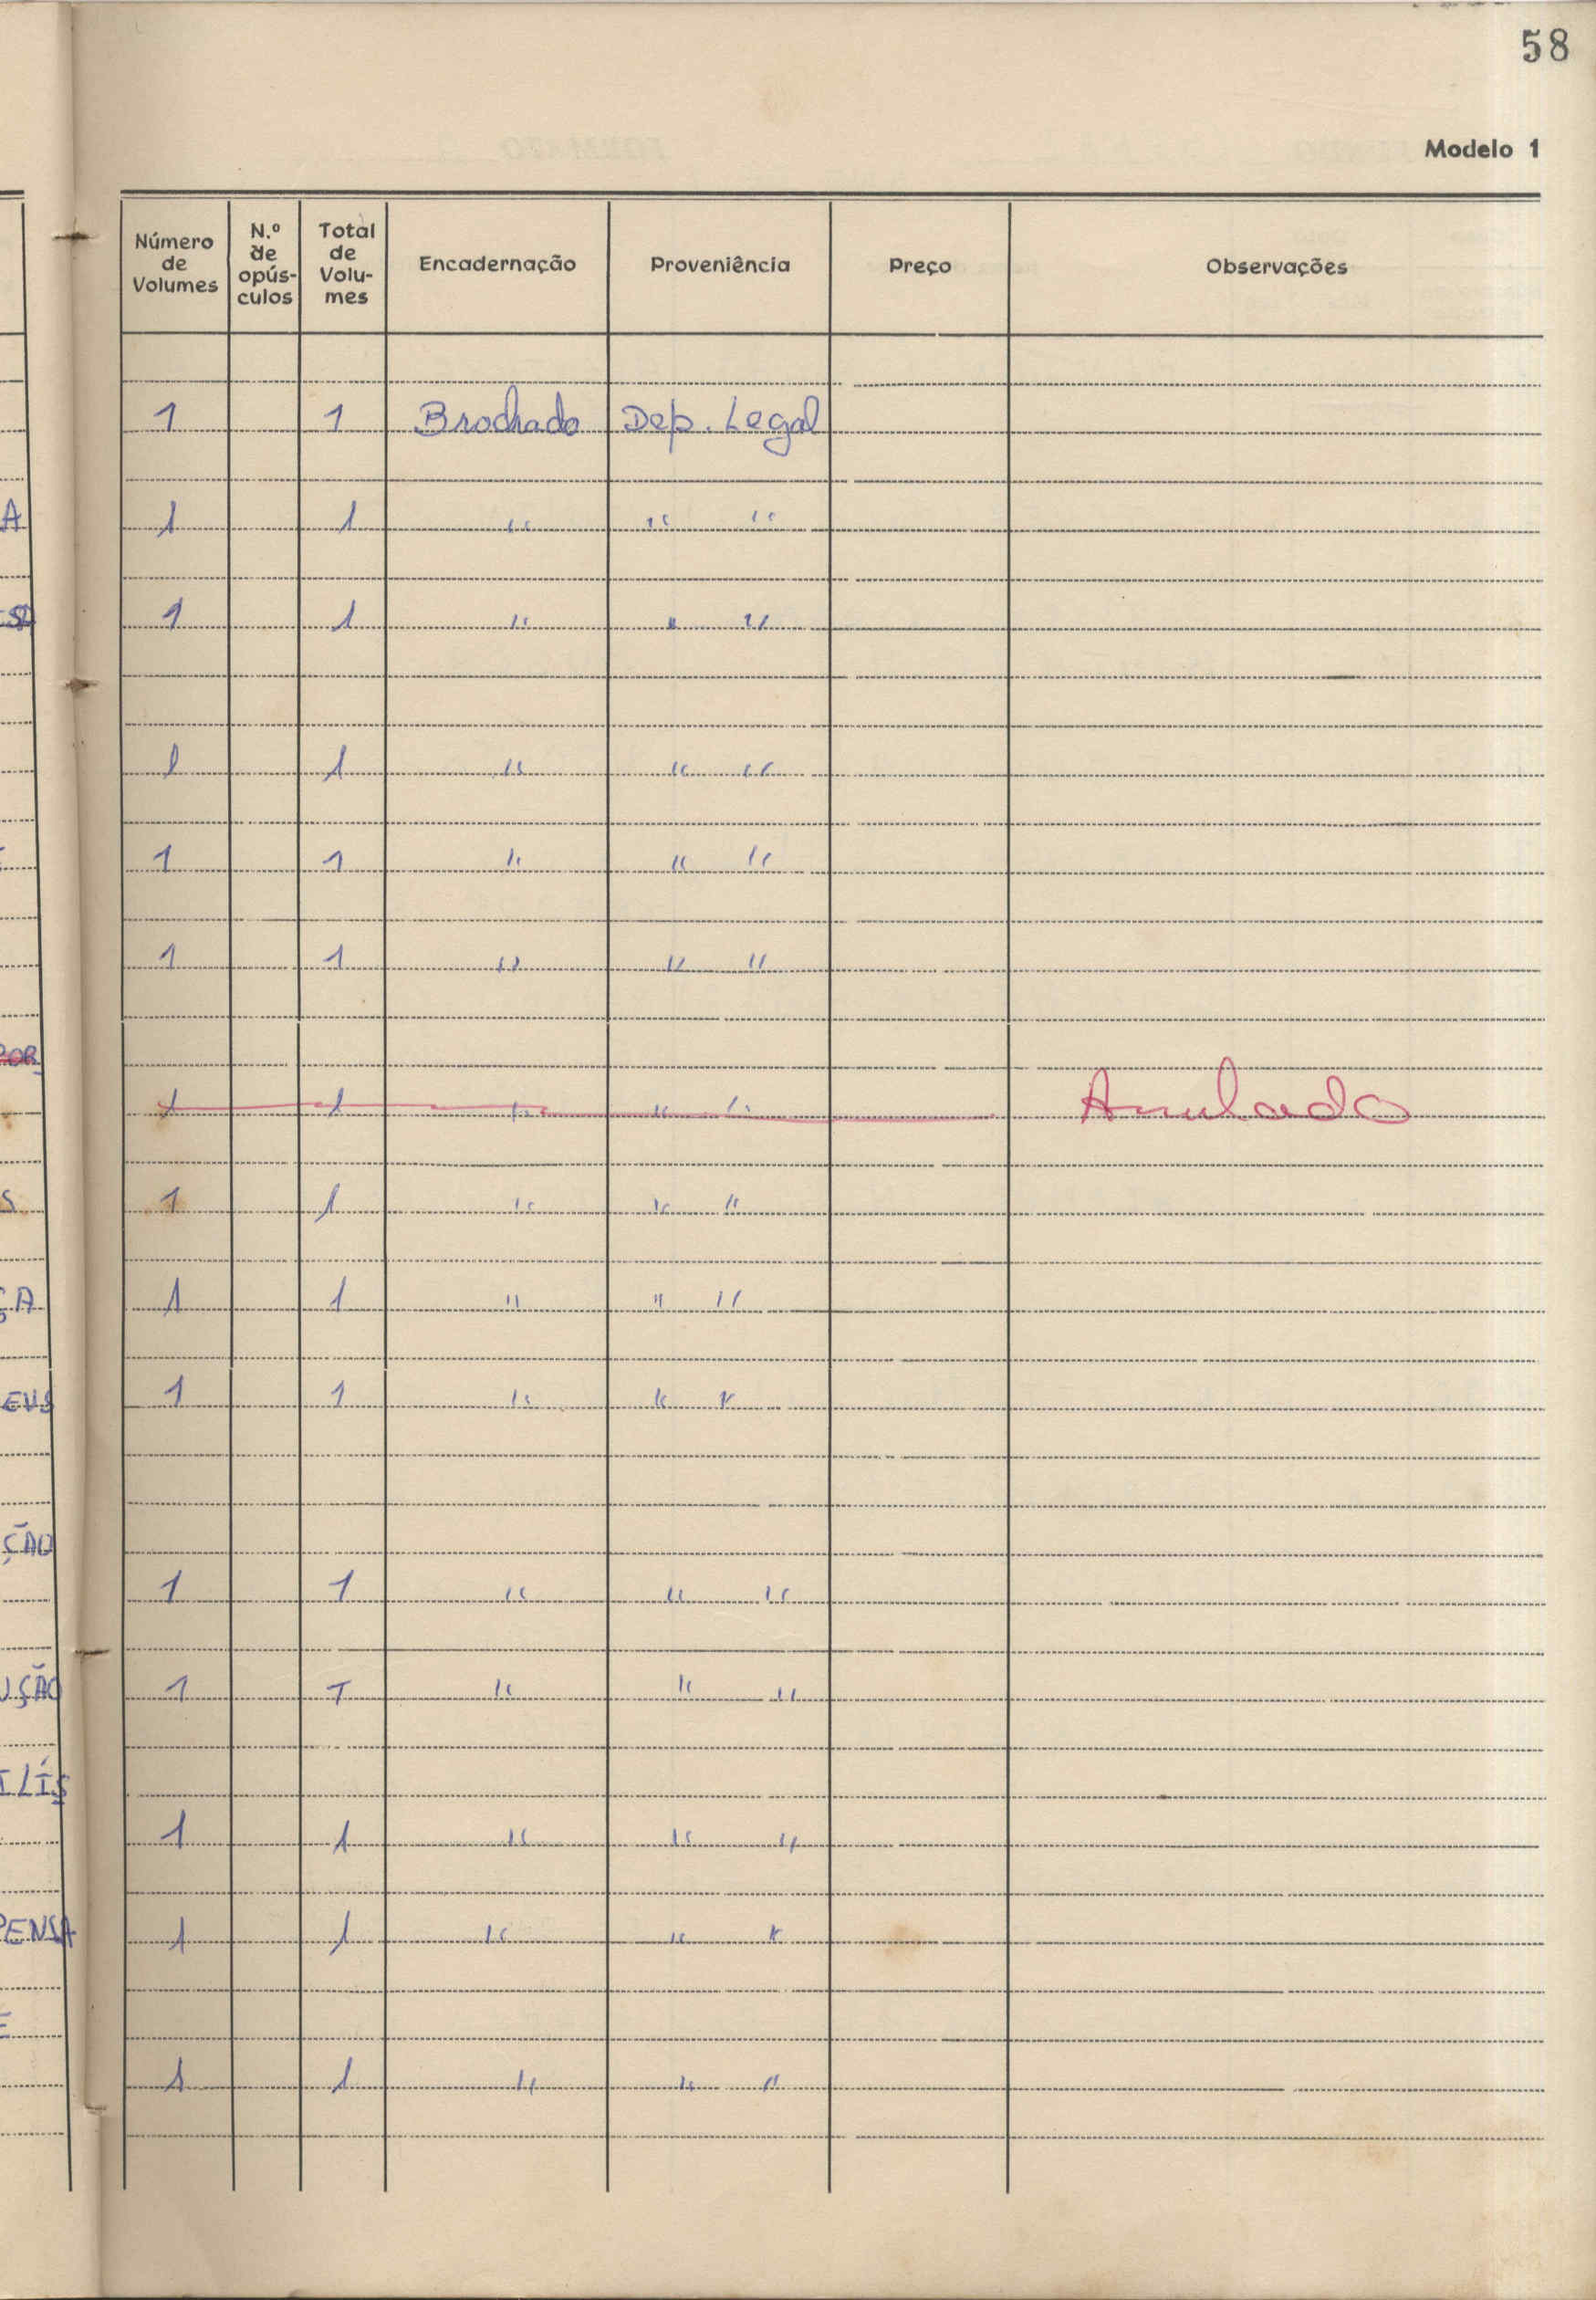 58
Modelo 1
Número de Volumes | N.º de opús-culos | Total de Volu-mes | Encadernação | Proveniência | Preço | Observações
1 1 Brochado Dep. Legal
A 1 1 " " "
1 1 " " "
1 1 " " "
1 1 " " "
1 1 " " "
POR
1 1 " " " Anulado
S 1 1 " " "
ÇA 1 1 " " "
ENS 1 1 " " "
ÇÃO
1 1 " " "
UÇÃO 1 1 " " "
ILÍS
1 1 " " "
PENSA 1 1 " " "
E
1 1 " " "